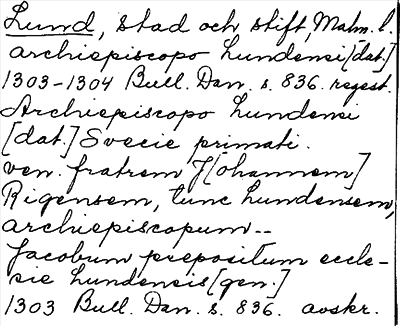 Lund, stad och stift, Malm. l.
archiepiscopo Lundensi [dat.]
1303-1304 Bull. Dan. s. 836. regest.
Archiepiscopo Lundensi
[dat.] Svecie primati.
ven. fratrem J[ohannem]
Rigensem, tunc Lundensem,
archiepiscopum--
Jacobum prepositum eccle-
sie Lundensis [gen.]
1303 Bull. Dan. s. 836. avskr.